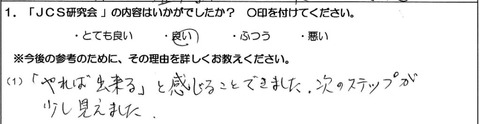 1. 「JCS研究会」の内容はいかがでしたか？ ○印を付けてください。
・とても良い ・良い ・ふつう ・悪い
※今後の参考のために、その理由を詳しくお教えください。
(1) 「やれば出来る」と感じることできました．次のステップが
少し見えました．